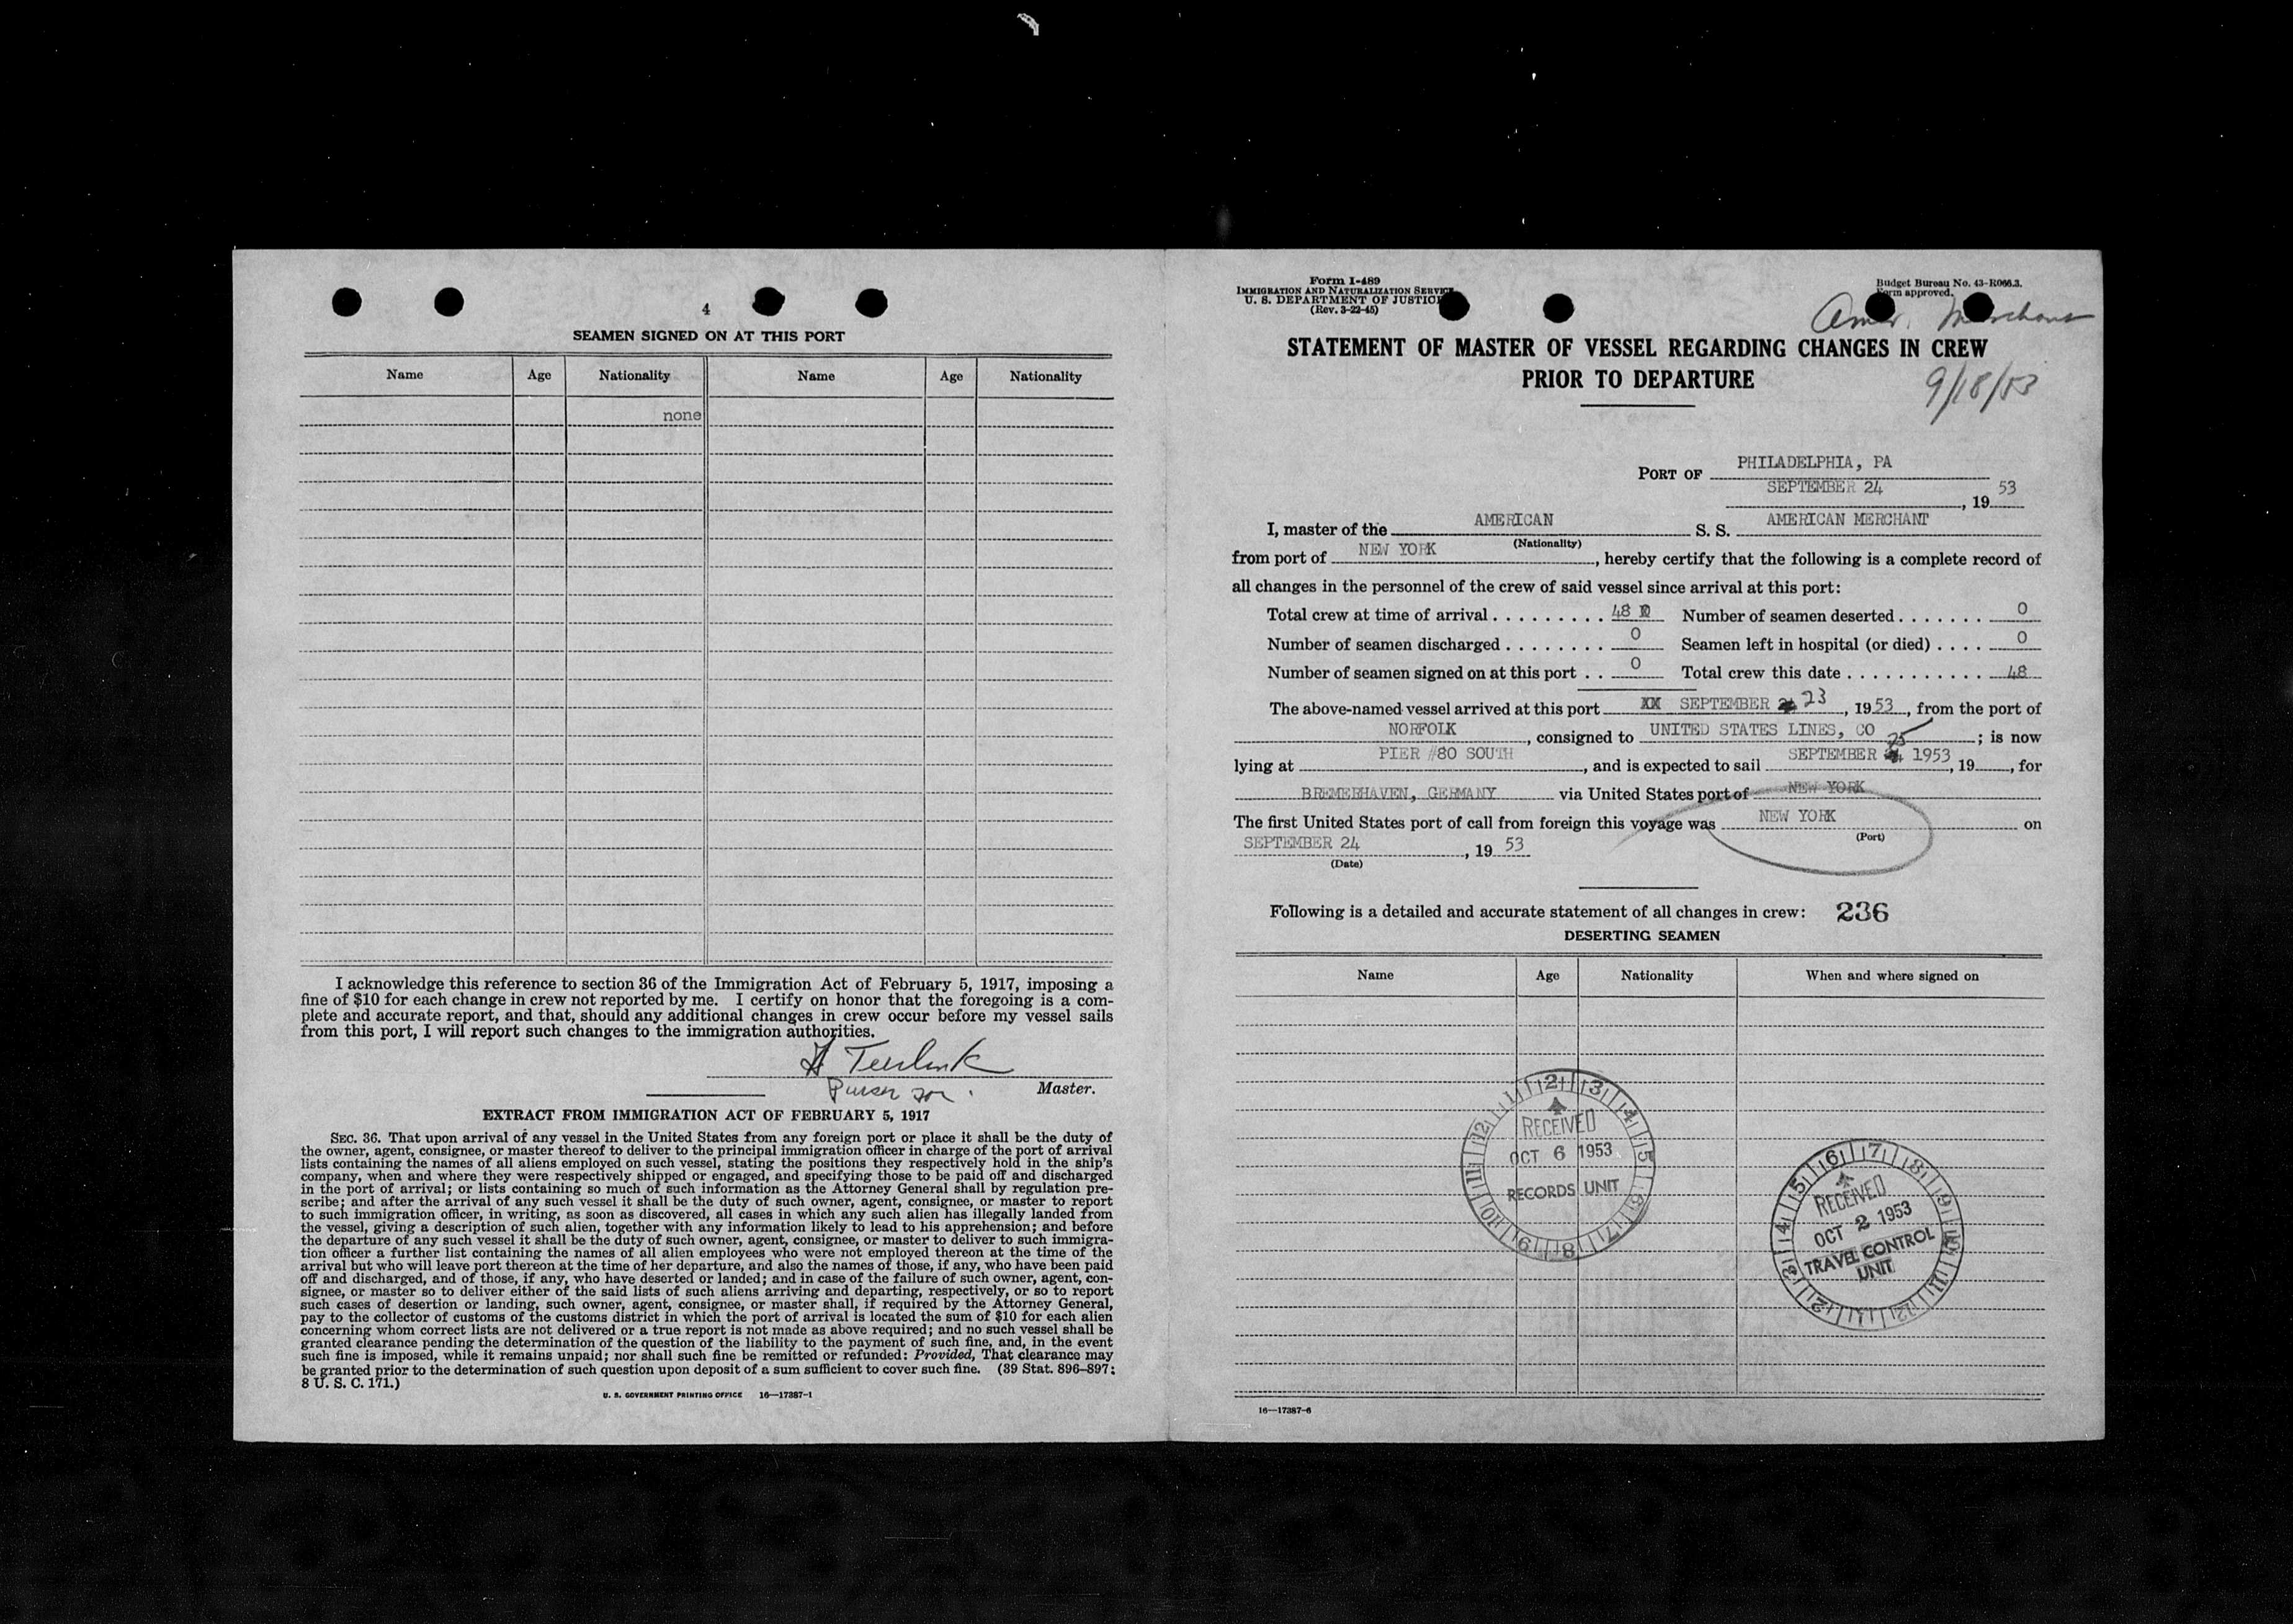 4
SEAMEN SIGNED ON AT THIS PORT
Name Age Nationality Name Age Nationality
none
I acknowledge this reference to section 36 of the Immigration Act of February 5, 1917, imposing a
fine of $10 for each change in crew not reported by me. I certify on honor that the foregoing is a com-
plete and accurate report, and that, should any additional changes in crew occur before my vessel sails
from this port, I will report such changes to the immigration authorities.
Purser for. Master.
EXTRACT FROM IMMIGRATION ACT OF FEBRUARY 5, 1917
SEC. 36. That upon arrival of any vessel in the United States from any foreign port or place it shall be the duty of
the owner, agent, consignee, or master thereof to deliver to the principal immigration officer in charge of the port of arrival
lists containing the names of all aliens employed on such vessel, stating the positions they respectively hold in the ship's
company, when and where they were respectively shipped or engaged, and specifying those to be paid off and discharged
in the port of arrival; or lists containing so much of such information as the Attorney General shall by regulation pre-
scribe; and after the arrival of any such vessel it shall be the duty of such owner, agent, consignee, or master to report
to such immigration officer, in writing, as soon as discovered, all cases in which any such alien has illegally landed from
the vessel, giving a description of such alien, together with any information likely to lead to his apprehension; and before
the departure of any such vessel it shall be the duty of such owner, agent, consignee, or master to deliver to such immigra-
tion officer a further list containing the names of all alien employees who were not employed thereon at the time of the
arrival but who will leave port thereon at the time of her departure, and also the names of those, if any, who have been paid
off and discharged, and of those, if any, who have deserted or landed; and in case of the failure of such owner, agent, con-
signee, or master so to deliver either of the said lists of such aliens arriving and departing, respectively, or so to report
such cases of desertion or landing, such owner, agent, consignee, or master shall, if required by the Attorney General,
pay to the collector of customs of the customs district in which the port of arrival is located the sum of $10 for each alien
concerning whom correct lists are not delivered or a true report is not made as above required; and no such vessel shall be
granted clearance pending the determination of the question of the liability to the payment of such fine, and, in the event
such fine is imposed, while it remains unpaid; nor shall such fine be remitted or refunded: Provided, That clearance may
be granted prior to the determination of such question upon deposit of a sum sufficient to cover such fine. (39 Stat. 896-897;
8 U. S. C. 171.)
U. S. GOVERNMENT PRINTING OFFICE 16—17387-1
Form I-489
IMMIGRATION AND NATURALIZATION SERVICE
U. S. DEPARTMENT OF JUSTICE
(Rev. 3-22-45)
Budget Bureau No. 43-R066.3.
Form approved.
Amer. Merchant
STATEMENT OF MASTER OF VESSEL REGARDING CHANGES IN CREW
PRIOR TO DEPARTURE
9/18/53
PORT OF PHILADELPHIA, PA
SEPTEMBER 24, 19 53
I, master of the AMERICAN S. S. AMERICAN MERCHANT
(Nationality)
from port of NEW YORK, hereby certify that the following is a complete record of
all changes in the personnel of the crew of said vessel since arrival at this port:
Total crew at time of arrival . . . . . . . . . 48 Number of seamen deserted . . . . . . . 0
Number of seamen discharged . . . . . . . . 0 Seamen left in hospital (or died) . . . . 0
Number of seamen signed on at this port . . 0 Total crew this date . . . . . . . . . . . 48
The above-named vessel arrived at this port XX SEPTEMBER 23, 1953, from the port of
NORFOLK, consigned to UNITED STATES LINES, CO; is now
lying at PIER #80 SOUTH, and is expected to sail SEPTEMBER 25 1953, 19, for
BREMERHAVEN, GERMANY via United States port of NEW YORK
The first United States port of call from foreign this voyage was NEW YORK on
(Port)
SEPTEMBER 24, 19 53
(Date)
Following is a detailed and accurate statement of all changes in crew: 236
DESERTING SEAMEN
Name Age Nationality When and where signed on
RECEIVED
OCT 6 1953
RECORDS UNIT
RECEIVED
OCT 2 1953
TRAVEL CONTROL
UNIT
16—17387-6